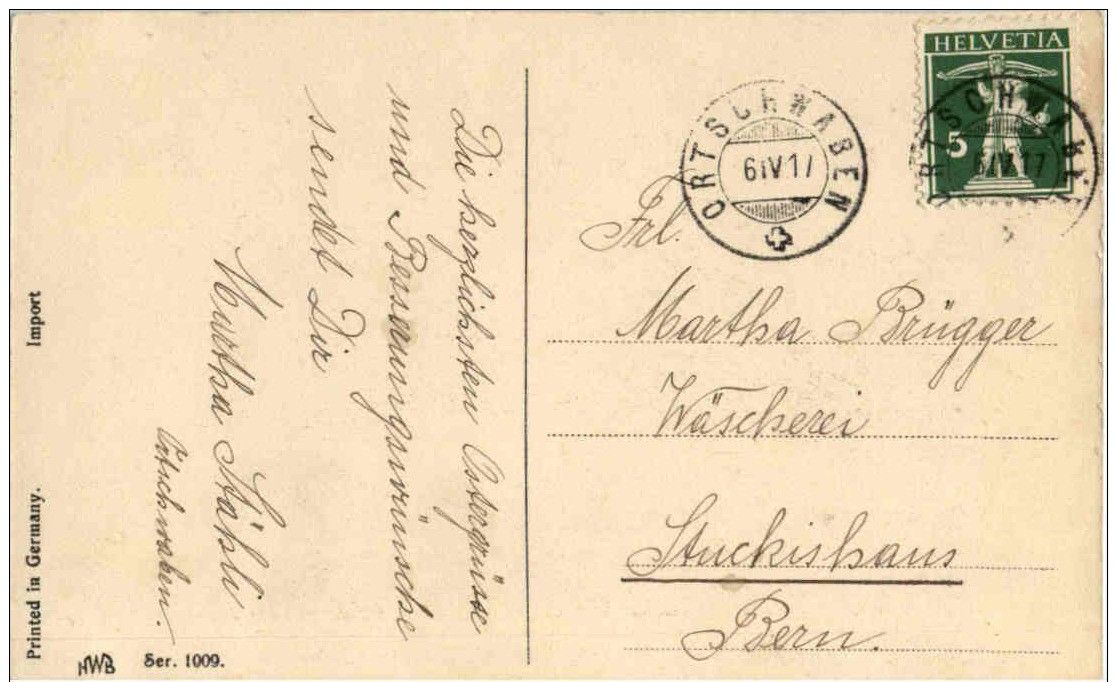 Die herzlichsten Ostergrüsse
und Besserungswünsche
sendet Dir
Martha Stähli
Ortschwaben.
Printed in Germany.
Import
HWB
Ser. 1009.
ORTSCHWABEN
6 IV 17
HELVETIA
5
ORTSCHWABEN
6 IV 17
Frl.
Martha Brügger
Wäscherei
Stuckishaus
Bern.